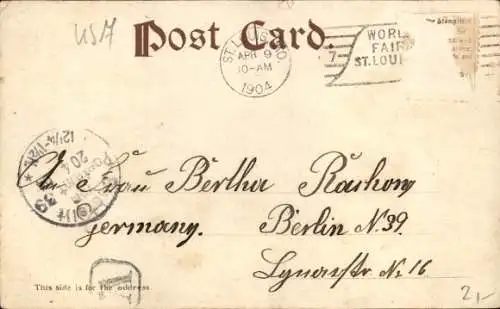 USA
Post Card.
ST. LOUIS, MO.
APR 9
10-AM
1904
7
WORL
FAIR
ST. LOUI
20 4
12¼-1½N.
39
Frau Bertha Raskow
Germany. Berlin N. 39.
Lynarstr No 16
This side is for the address.
2,-